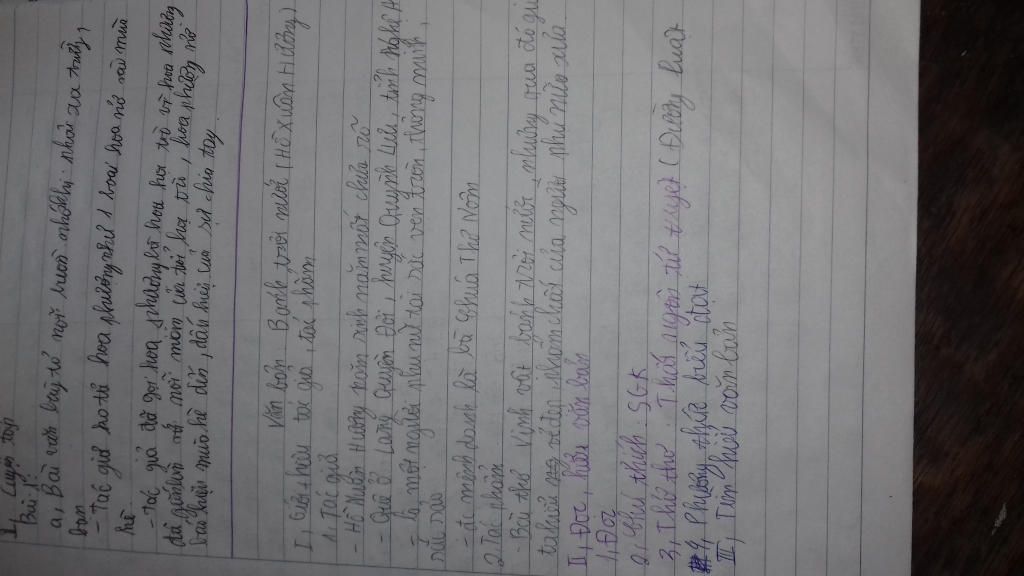 I, Luyện tập
Bài 1:
a, Bài văn bày tỏ nỗi buồn nhớ khi phải xa trường,
bạn
- Tác giả ho tả hoa phượng như 1 loài hoa nở vào mùa
hè
- tác giả đã gọi hoa phượng là hoa học trò vì hoa phượng
đã gắn bó với mỗi năm của tuổi học trò, hoa phượng nở
báo hiệu mùa hè đến, dấu hiệu của sự chia tay.
Văn bản Bánh trôi nước (Hồ Xuân Hương)
I, Giới thiệu tác giả, tác phẩm
1. Tác giả
- Hồ Xuân Hương năm sinh năm mất chưa rõ
- Quê ở Làng Quỳnh Đôi, huyện Quỳnh Lưu, tỉnh Nghệ A
- là một người phụ nữ tài sắc vẹn toàn, thông minh,
sắc sảo
- đc mệnh danh là bà chúa Thơ Nôm
2. Tác phẩm
- Bài thơ vịnh vật bánh trôi nước nhưng qua đó gi
thiệu vẻ đẹp, phẩm chất của người phụ nữ xưa
II, Đọc, hiểu văn bản
1, Đọc
2, Chú thích: SGK
3, Thể thơ: Thất ngôn tứ tuyệt (Đường luật
4, Phương thức biểu đạt
III, Tìm hiểu văn bản